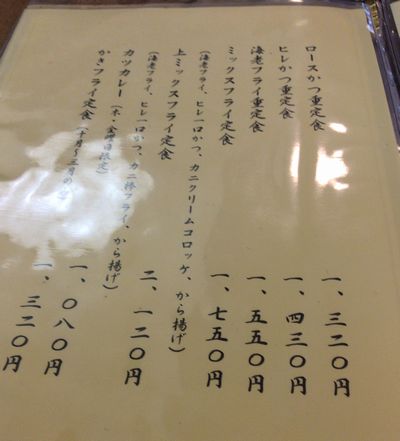 ロースかつ重定食 一、三二〇円
ヒレかつ重定食 一、四三〇円
海老フライ重定食 一、五五〇円
ミックスフライ定食 一、七五〇円
(海老フライ、ヒレ一口かつ、カニクリームコロッケ、から揚げ)
上ミックスフライ定食 二、一二〇円
(海老フライ、ヒレ一口かつ、カニ棒フライ、から揚げ)
カツカレー(木・金曜日限定) 一、〇八〇円
かきフライ定食(十月～三月の 一、三二〇円